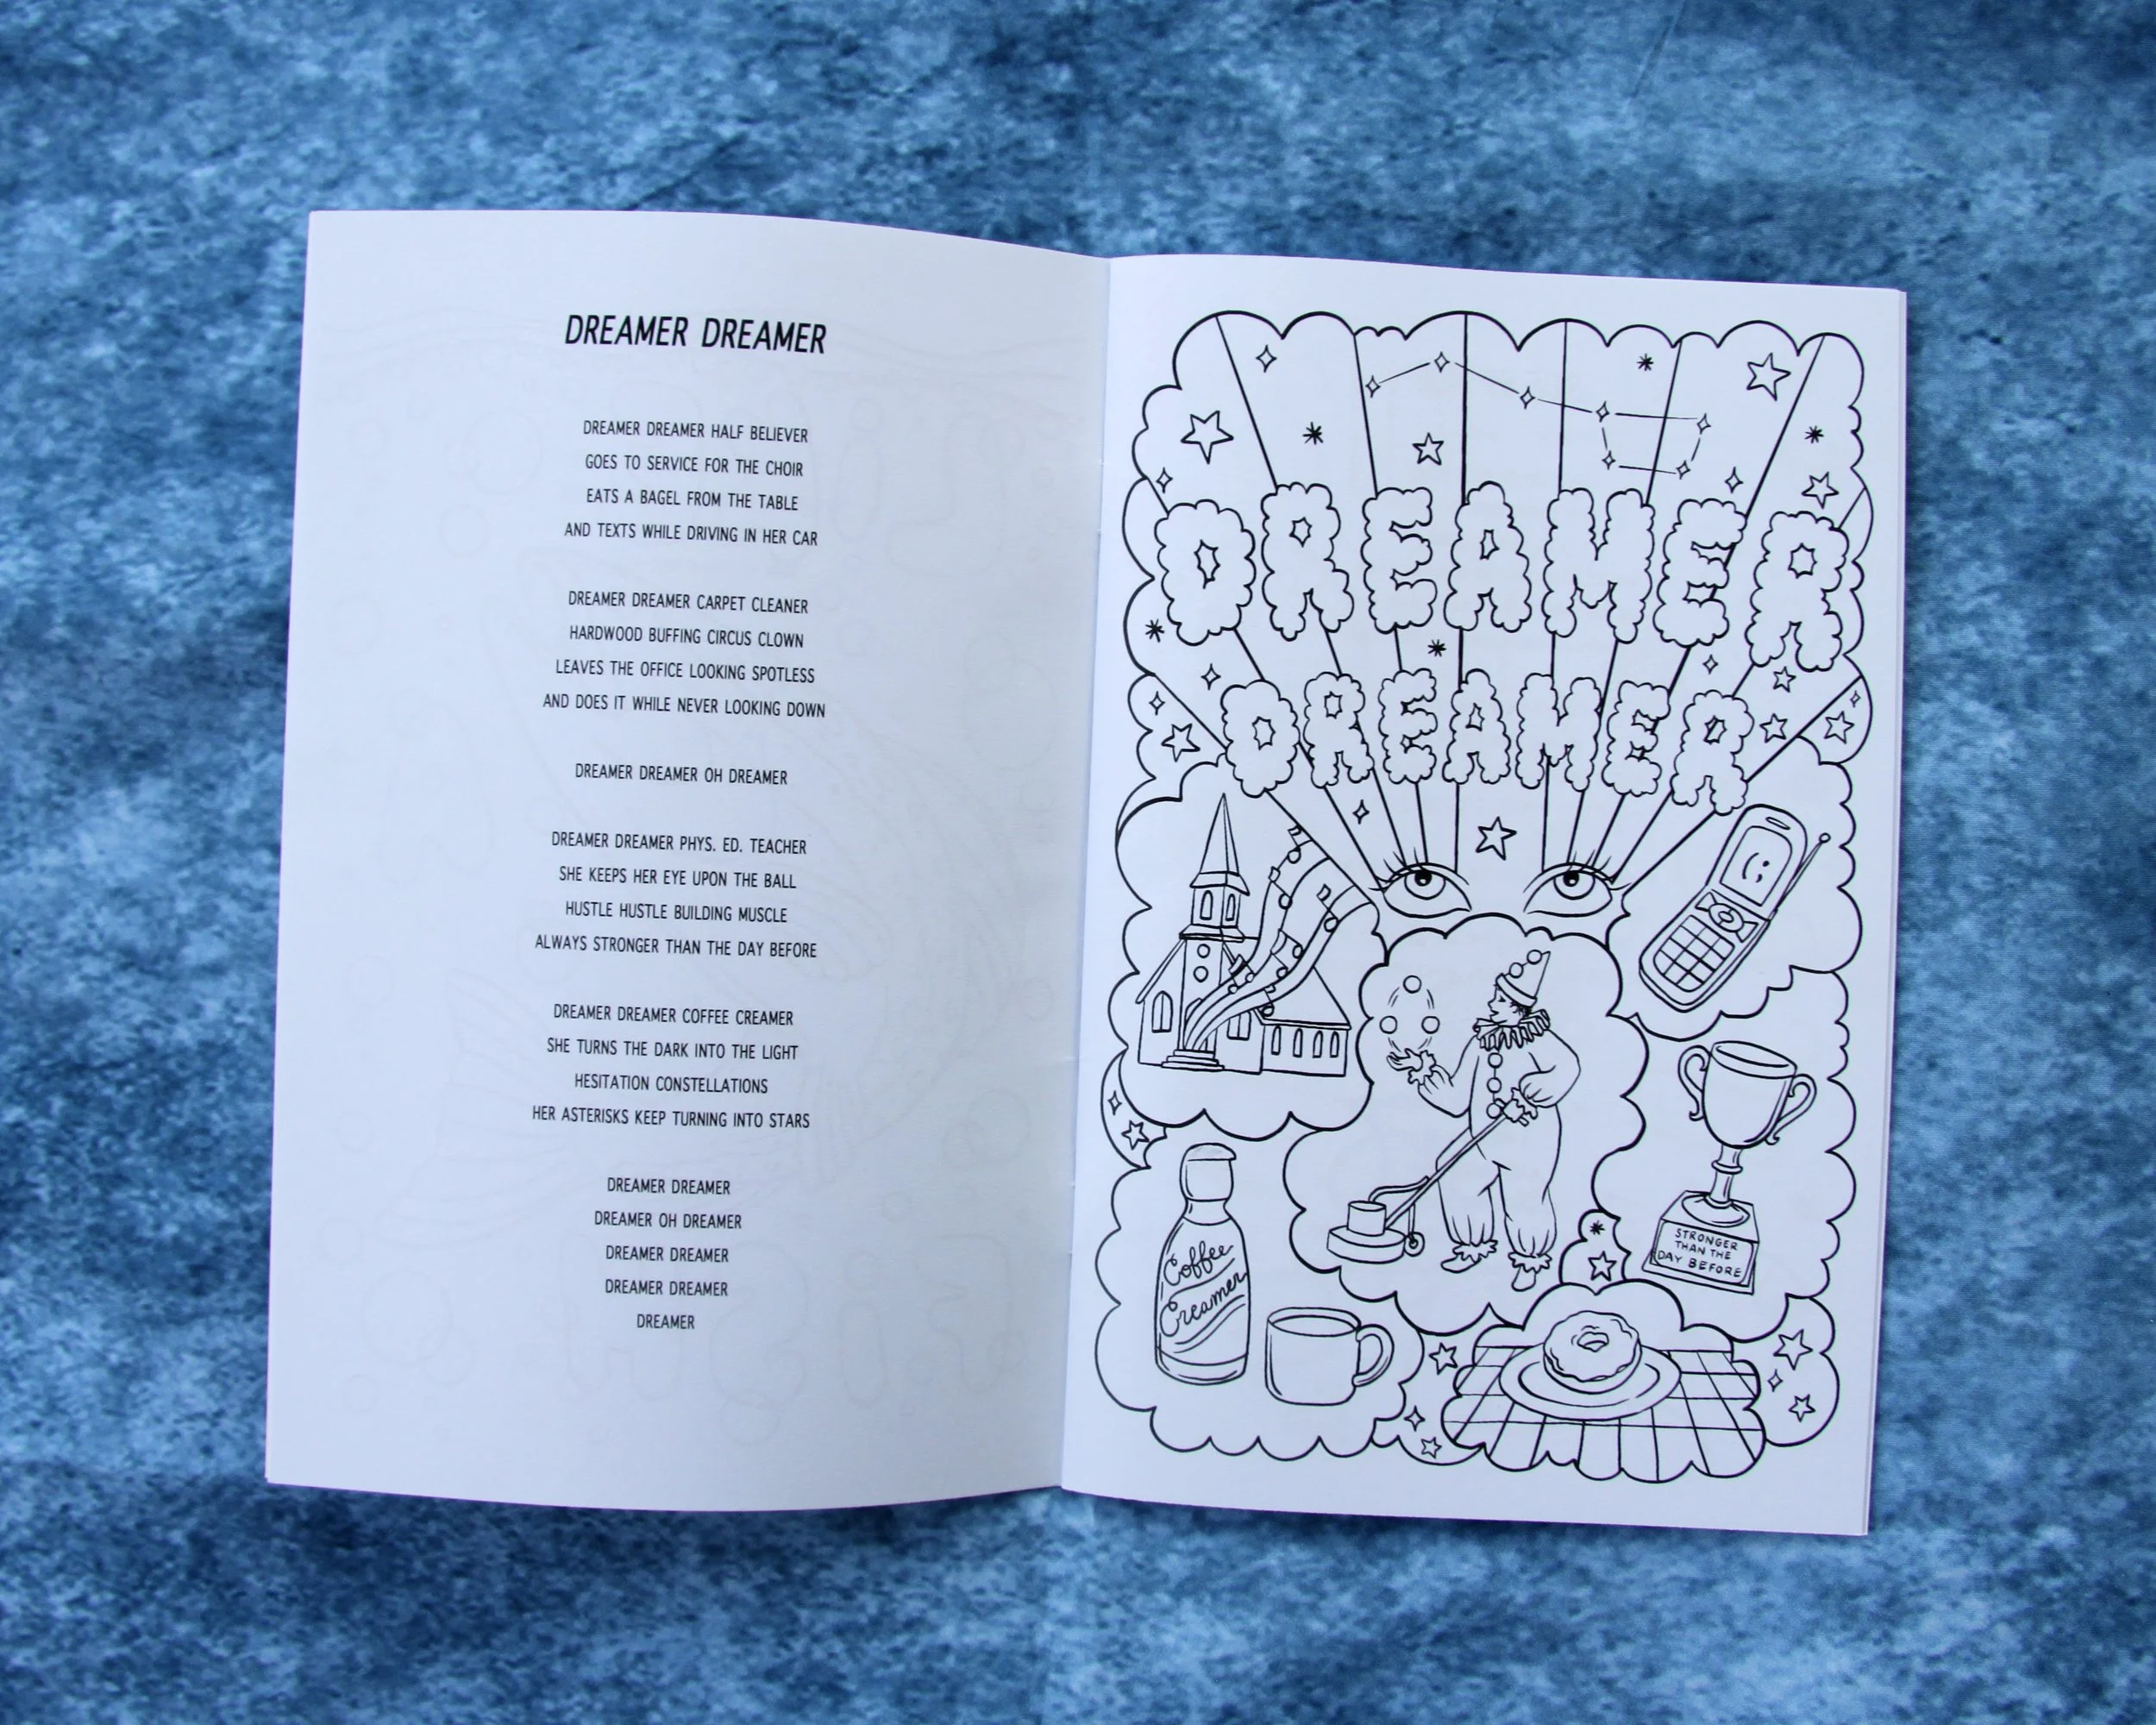 DREAMER DREAMER
DREAMER DREAMER HALF BELIEVER
GOES TO SERVICE FOR THE CHOIR
EATS A BAGEL FROM THE TABLE
AND TEXTS WHILE DRIVING IN HER CAR
DREAMER DREAMER CARPET CLEANER
HARDWOOD BUFFING CIRCUS CLOWN
LEAVES THE OFFICE LOOKING SPOTLESS
AND DOES IT WHILE NEVER LOOKING DOWN
DREAMER DREAMER OH DREAMER
DREAMER DREAMER PHYS. ED. TEACHER
SHE KEEPS HER EYE UPON THE BALL
HUSTLE HUSTLE BUILDING MUSCLE
ALWAYS STRONGER THAN THE DAY BEFORE
DREAMER DREAMER COFFEE CREAMER
SHE TURNS THE DARK INTO THE LIGHT
HESITATION CONSTELLATIONS
HER ASTERISKS KEEP TURNING INTO STARS
DREAMER DREAMER
DREAMER OH DREAMER
DREAMER DREAMER
DREAMER DREAMER
DREAMER
DREAMER
DREAMER
:)
STRONGER
THAN THE
DAY BEFORE
Coffee
Creamer